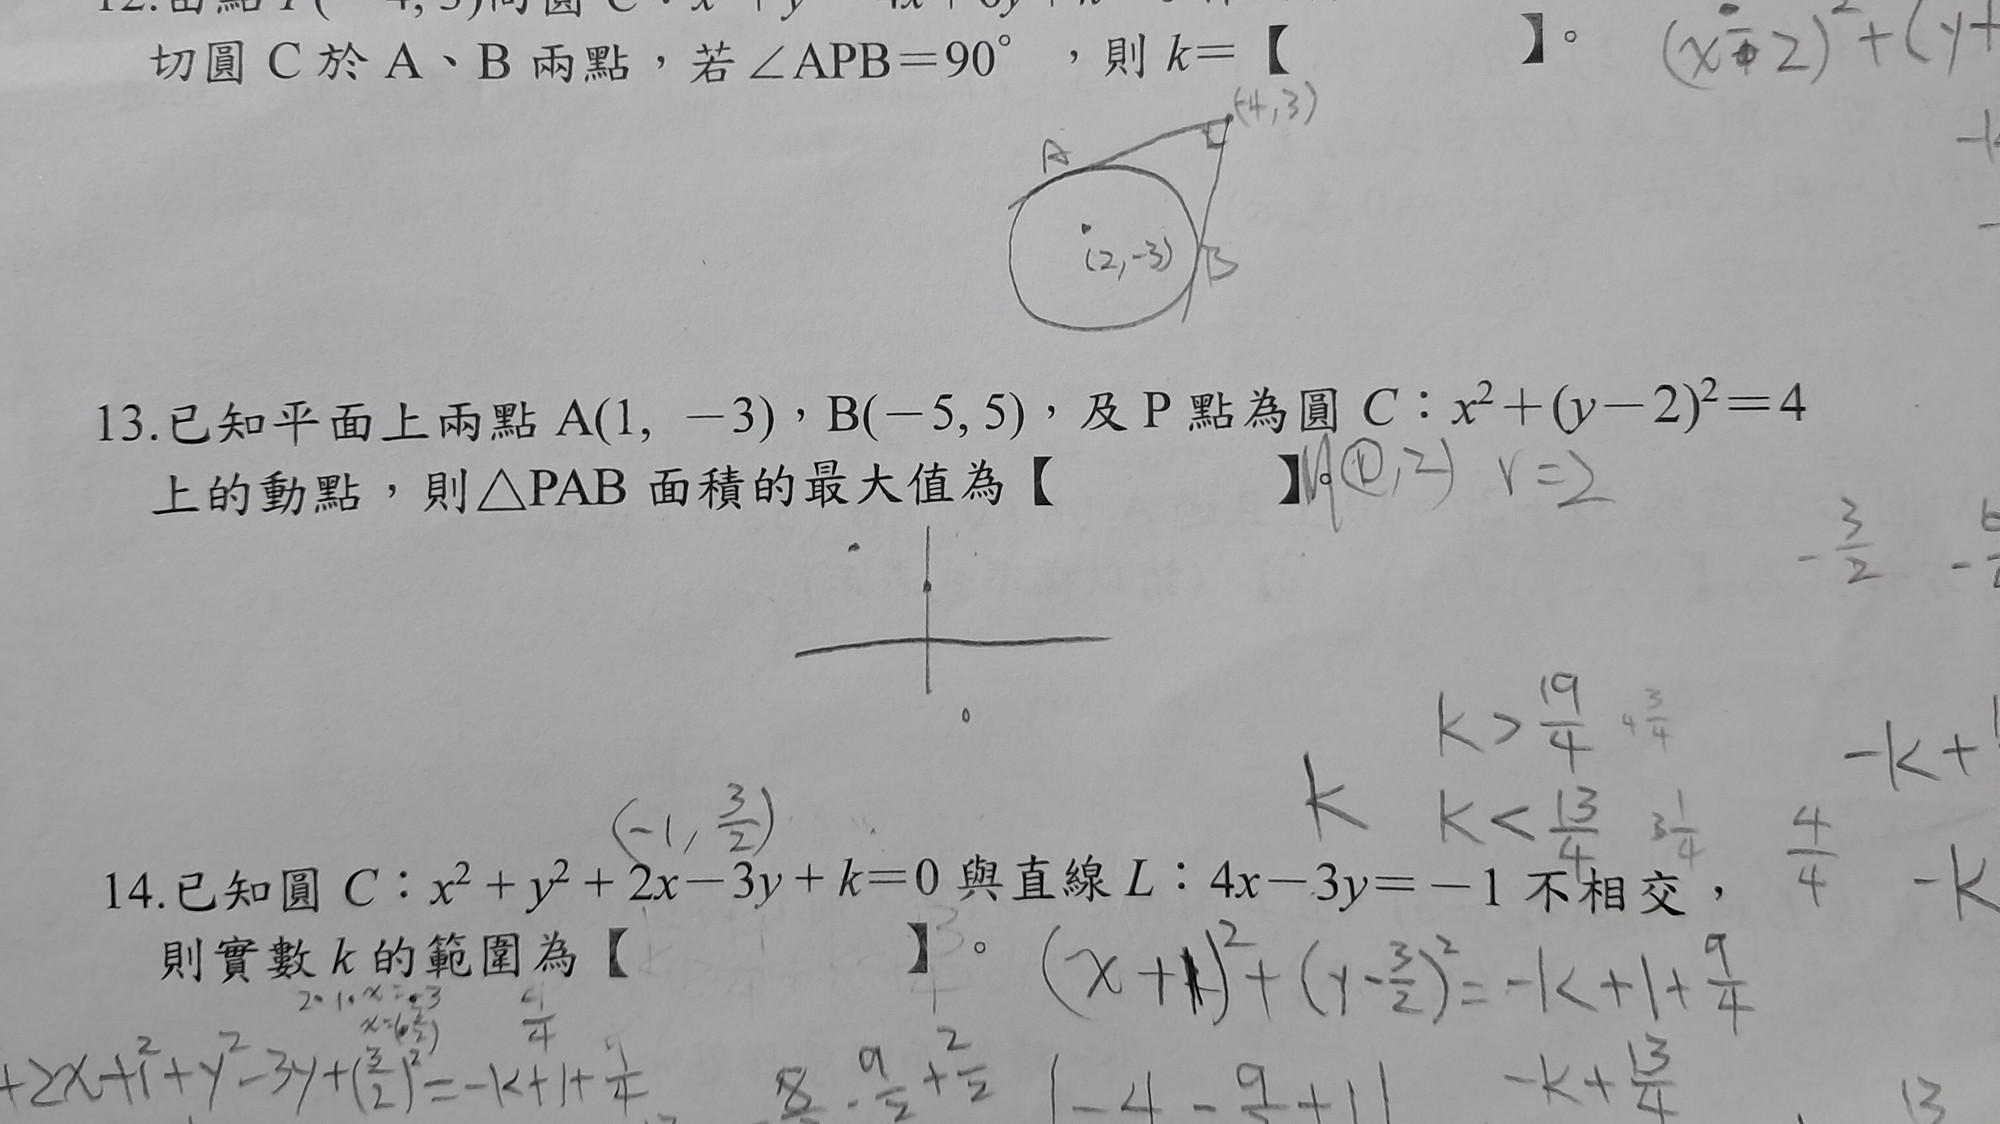 切圓 C 於 A、B 兩點，若∠APB＝90°，則 k＝【 】。
(-4,3)
A
(2,-3)
B
13.已知平面上兩點 A(1, －3)，B(－5, 5)，及 P 點為圓 C：x²＋(y－2)²＝4
上的動點，則△PAB 面積的最大值為【 】。
,2) r=2
-3/2
k > 19/4 4 3/4
k
k < 13/4 3 1/4
4/4
-k+
-k
(-1, 3/2)
14.已知圓 C：x²＋y²＋2x－3y＋k＝0 與直線 L：4x－3y＝－1 不相交，
則實數 k 的範圍為【 】。
(x+1)²+(y-3/2)²=-k+1+9/4
+2x+1²+y²-3y+(3/2)²=-k+1+9/4
-9/2+2/2
-k+13/4
13